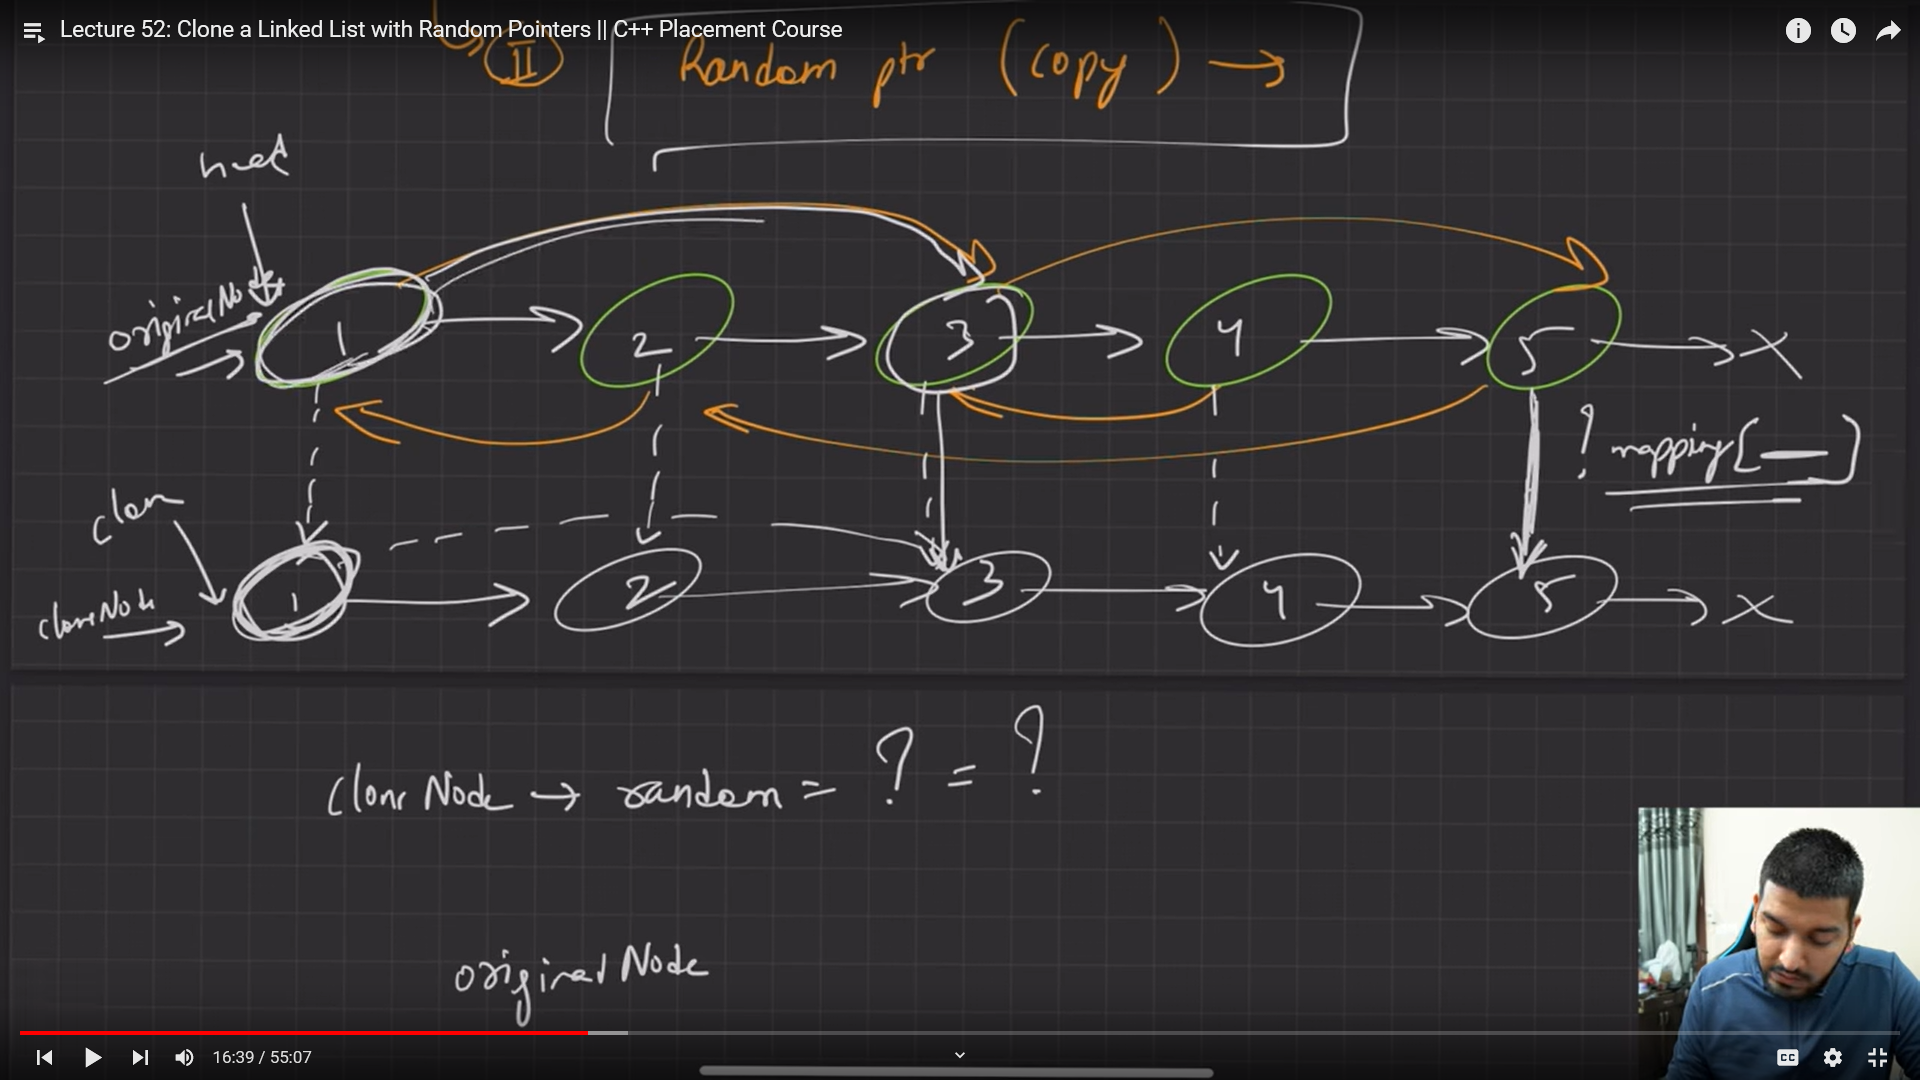 Lecture 52: Clone a Linked List with Random Pointers || C++ Placement Course
II Random ptr (copy) →
head
originalNode
1 → 2 → 3 → 4 → 5 → X
? mapping[—]
clone
cloneNode →
1 → 2 → 3 → 4 → 5 → X
Clone Node → random = ? = ?
original Node
16:39 / 55:07
CC